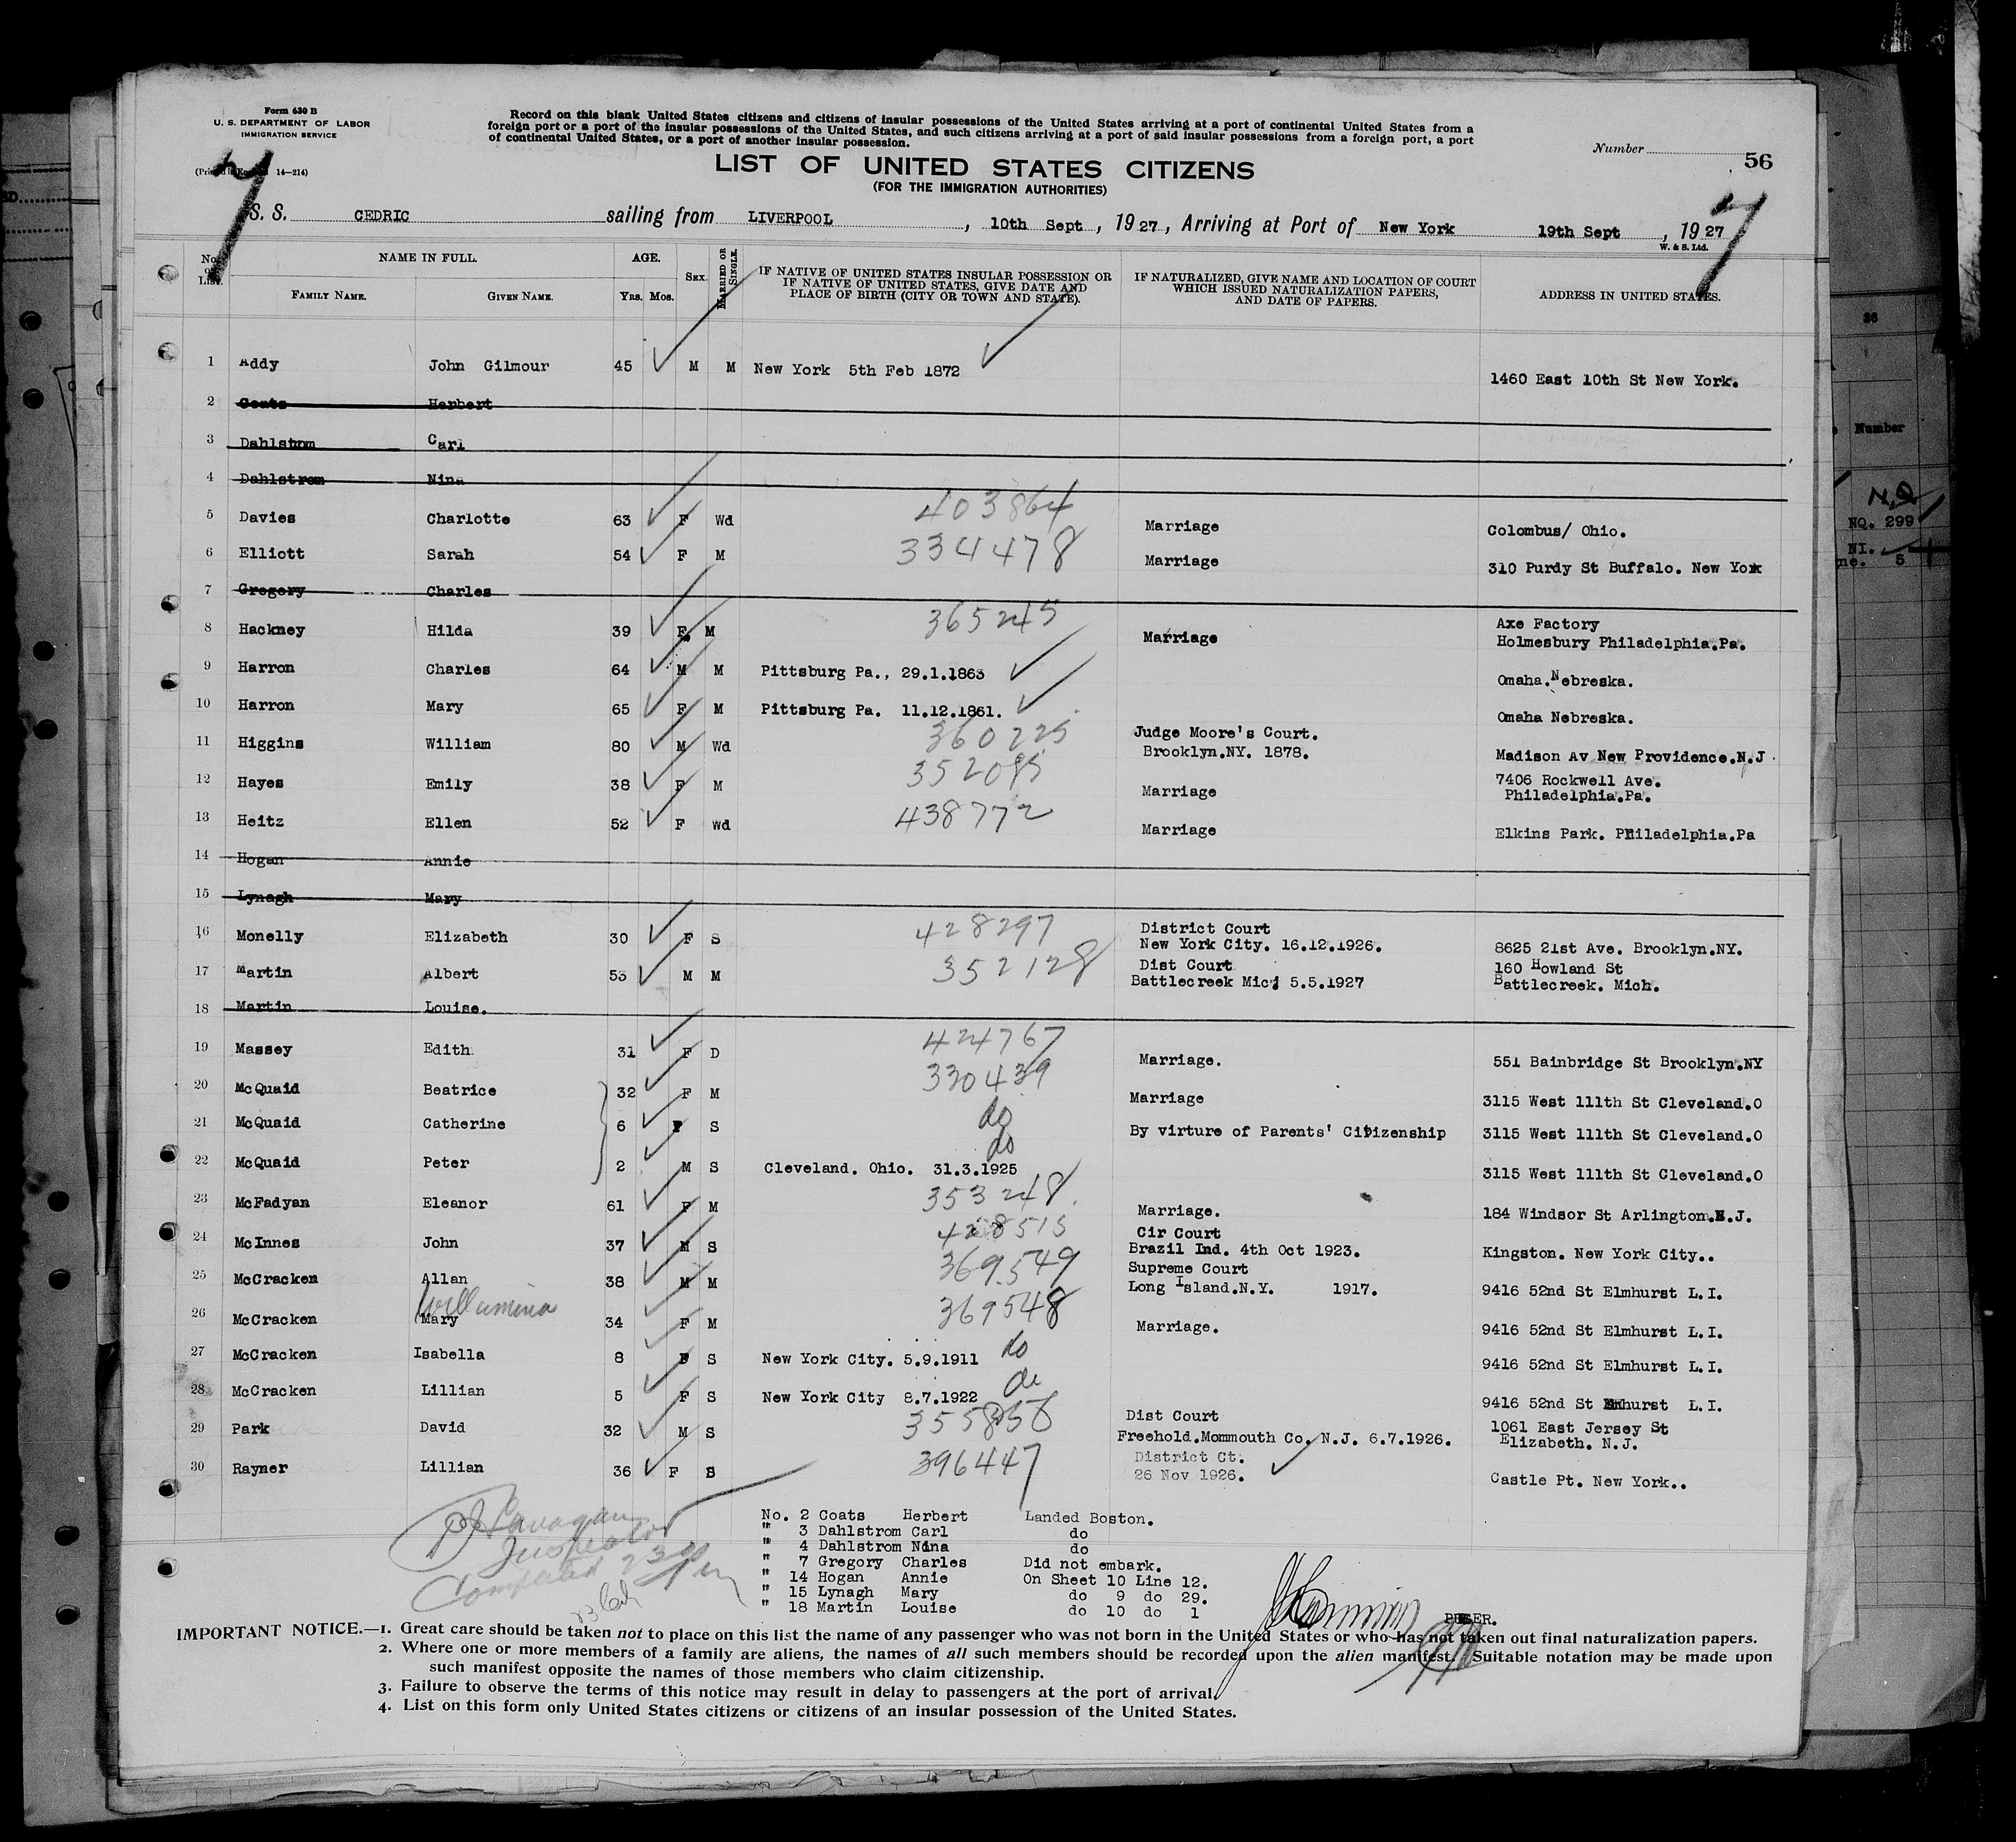 Form 630 B
U. S. DEPARTMENT OF LABOR
IMMIGRATION SERVICE
14—214)
Record on this blank United States citizens and citizens of insular possessions of the United States arriving at a port of continental United States from a
foreign port or a port of the insular possessions of the United States, and such citizens arriving at a port of said insular possessions from a foreign port, a port
of continental United States, or a port of another insular possession.
Number
56
LIST OF UNITED STATES CITIZENS
(FOR THE IMMIGRATION AUTHORITIES)
7
7
S. S. CEDRIC sailing from LIVERPOOL, 10th Sept, 1927, Arriving at Port of New York 19th Sept, 1927
W. & S. Ltd.
No. on List. NAME IN FULL. AGE. SEX. MARRIED OR SINGLE. IF NATIVE OF UNITED STATES INSULAR POSSESSION OR IF NATIVE OF UNITED STATES, GIVE DATE AND PLACE OF BIRTH (CITY OR TOWN AND STATE). IF NATURALIZED, GIVE NAME AND LOCATION OF COURT WHICH ISSUED NATURALIZATION PAPERS, AND DATE OF PAPERS. ADDRESS IN UNITED STATES.
FAMILY NAME. GIVEN NAME. YRS. MOS.
1 Addy John Gilmour 45 M M New York 5th Feb 1872 1460 East 10th St New York.
2 Coats Herbert
3 Dahlstrom Carl
4 Dahlstrom Nina
5 Davies Charlotte 63 F Wd 403864 Marriage Colombus/ Ohio.
6 Elliott Sarah 54 F M 334478 Marriage 310 Purdy St Buffalo. New Yok
7 Gregory Charles
8 Hackney Hilda 39 F M 365245 Marriage Axe Factory
Holmesbury Philadelphia.Pa.
9 Harron Charles 64 M M Pittsburg Pa., 29.1.1863 Omaha.Nebreska.
10 Harron Mary 65 F M Pittsburg Pa. 11.12.1861. Omaha Nebreska.
11 Higgins William 80 M Wd 360225 Judge Moore's Court.
Brooklyn.NY. 1878. Madison Av New Providence.N.J
12 Hayes Emily 38 F M 352085 Marriage 7406 Rockwell Ave.
Philadelphia.Pa.
13 Heitz Ellen 52 F Wd 438772 Marriage Elkins Park. Philadelphia.Pa
14 Hogan Annie
15 Lynagh Mary
16 Monelly Elizabeth 30 F S 428297 District Court
New York City. 16.12.1926. 8625 21st Ave. Brooklyn.NY.
17 Martin Albert 53 M M 352128 Dist Court 160 Howland St
Battlecreek Mic; 5.5.1927 Battlecreek. Mich.
18 Martin Louise.
19 Massey Edith 31 F D 424767 Marriage. 551 Bainbridge St Brooklyn.NY
20 McQuaid Beatrice 32 F M 330439 Marriage 3115 West 111th St Cleveland.O
21 McQuaid Catherine 6 F S do By virture of Parents' Citizenship 3115 West 111th St Cleveland.O
22 McQuaid Peter 2 M S do Cleveland. Ohio. 31.3.1925 3115 West 111th St Cleveland.O
23 McFadyan Eleanor 61 F M 353248 Marriage. 184 Windsor St Arlington.N.J.
24 McInnes John 37 M S 428515 Cir Court
Brazil Ind. 4th Oct 1923. Kingston. New York City..
25 McCracken Allan 38 M M 369549 Supreme Court
Long Island.N.Y. 1917. 9416 52nd St Elmhurst L.I.
Willamina
26 McCracken Mary 34 F M 369548 Marriage. 9416 52nd St Elmhurst L.I.
27 McCracken Isabella 8 F S New York City. 5.9.1911 do 9416 52nd St Elmhurst L.I.
28 McCracken Lillian 5 F S New York City 8.7.1922 do 9416 52nd St Elmhurst L.I.
29 Park David 32 M S 355858 Dist Court 1061 East Jersey St
Freehold.Mommouth Co. N.J. 6.7.1926. Elizabeth. N.J.
30 Rayner Lillian 36 F S 396447 District Ct.
26 Nov 1926. Castle Pt. New York..
Inspector
Completed
No. 2 Coats Herbert Landed Boston.
" 3 Dahlstrom Carl do
" 4 Dahlstrom Nina do
" 7 Gregory Charles Did not embark.
" 14 Hogan Annie On Sheet 10 Line 12.
" 15 Lynagh Mary do 9 do 29.
" 18 Martin Louise do 10 do 1
PURSER.
IMPORTANT NOTICE.—1. Great care should be taken not to place on this list the name of any passenger who was not born in the United States or who has not taken out final naturalization papers.
2. Where one or more members of a family are aliens, the names of all such members should be recorded upon the alien manifest. Suitable notation may be made upon
such manifest opposite the names of those members who claim citizenship.
3. Failure to observe the terms of this notice may result in delay to passengers at the port of arrival.
4. List on this form only United States citizens or citizens of an insular possession of the United States.
36
Number
NQ. 299
NI.
5